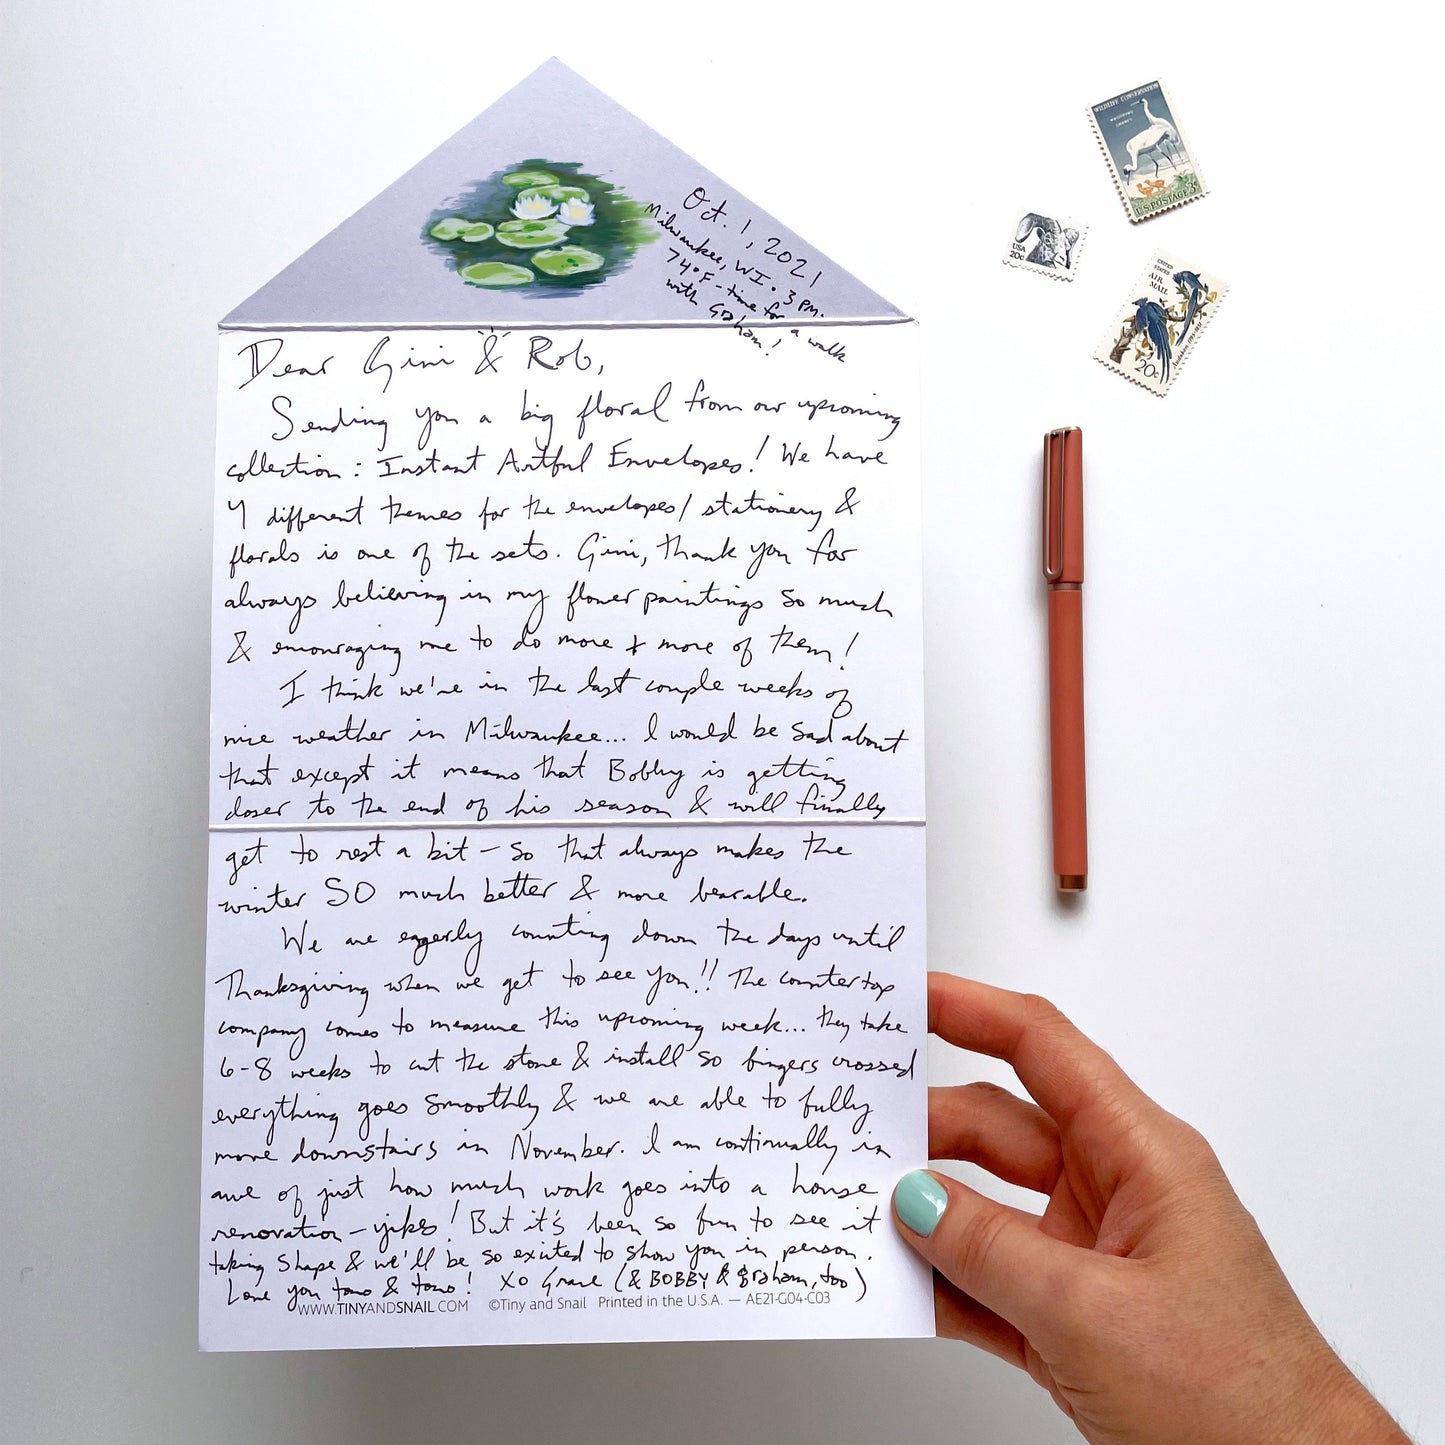 Oct. 1, 2021
Milwaukee, WI • 3 PM.
74°F - time for a walk
with Graham!
Dear Gini & Rob,
Sending you a big floral from our upcoming
collection: Instant Artful Envelopes! We have
4 different themes for the envelopes/stationery &
florals is one of the sets. Gini, thank you for
always believing in my flower paintings so much
& encouraging me to do more + more of them!
I think we're in the last couple weeks of
nice weather in Milwaukee... I would be sad about
that except it means that Bobby is getting
closer to the end of his season & will finally
get to rest a bit - so that always makes the
winter SO much better & more bearable.
We are eagerly counting down the days until
Thanksgiving when we get to see you!! The countertop
company comes to measure this upcoming week... they take
6-8 weeks to cut the stone & install so fingers crossed
everything goes smoothly & we are able to fully
move downstairs in November. I am continually in
awe of just how much work goes into a house
renovation - yikes! But it's been so fun to see it
taking shape & we'll be so excited to show you in person.
Love you tons & tons! XO Grace (& BOBBY & Graham, too)
WWW.TINYANDSNAIL.COM ©Tiny and Snail Printed in the U.S.A. — AE21-G04-C03
WILDLIFE CONSERVATION
WHOOPING CRANES
U.S. POSTAGE 3¢
USA
20c
UNITED STATES
AIR MAIL
20¢